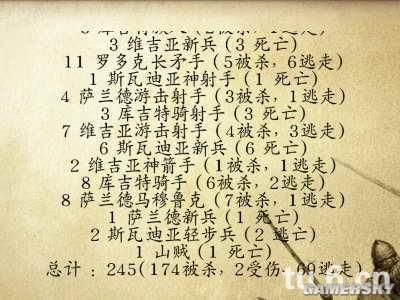 3 维吉亚新兵 (3 死亡)
11 罗多克长矛手 (5被杀, 6逃走)
1 斯瓦迪亚神射手 (1 死亡)
4 萨兰德游击射手 (3被杀, 1逃走)
3 库吉特骑射手 (3 死亡)
7 维吉亚游击射手 (4被杀, 3逃走)
6 斯瓦迪亚新兵 (6 死亡)
2 维吉亚神箭手 (1被杀, 1逃走)
8 库吉特骑手 (6被杀, 2逃走)
8 萨兰德马穆鲁克 (7被杀, 1逃走)
1 萨兰德新兵 (1 死亡)
2 斯瓦迪亚轻步兵 (2 逃亡)
1 山贼 (1 死亡)
总计 : 245(174被杀, 2受伤, 69逃走)
GAMERSKY